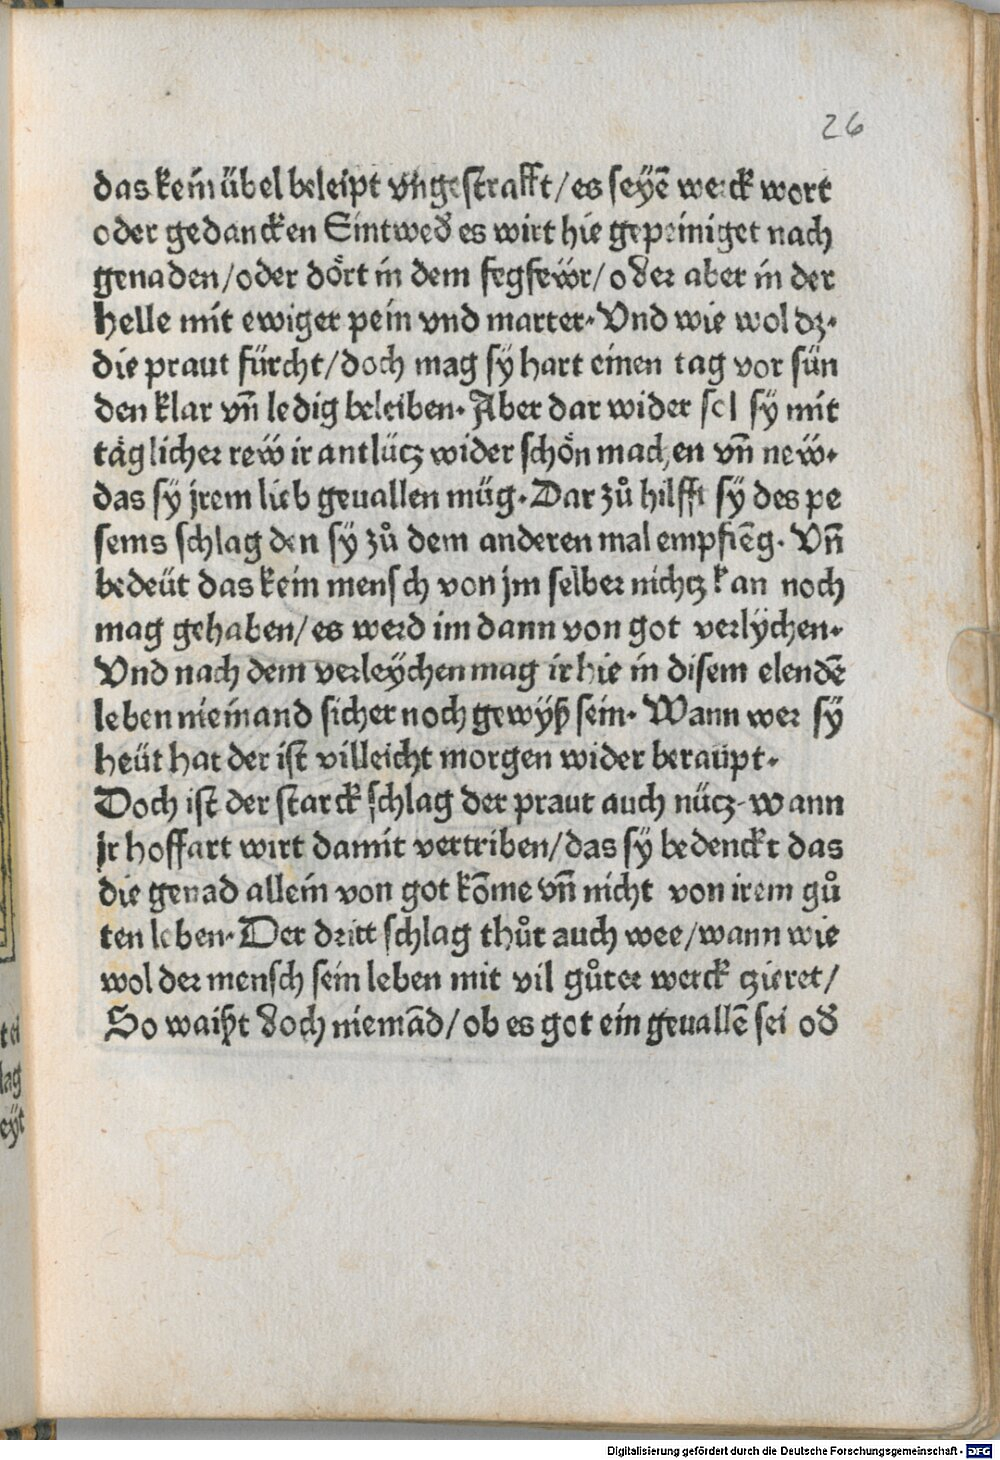 26
das kein übel beleipt vngestrafft/es seyē werck wort
oder gedancken Eintweď es wirt hie gepeiniget nach
genaden/oder dört in dem fegfewr/oder aber in der
helle mit ewiger pein vnd marter. Vnd wie wol dz.
die praut fürcht/doch mag sÿ hart einen tag vor sün
den klar vn̄ ledig beleiben. Aber dar wider sol sÿ mit
täglicher rew̋ ir antlücz wider schön machen vn̄ new̋.
das sÿ jrem lieb geuallen müg. Dar zů hilfft sÿ des pe
sems schlag den sÿ zů dem anderen mal empfiēg. Vn̄
bedeüt das kein mensch von jm selber nichcz kan noch
mag gehaben/es werd im dann von got verlÿchen.
Vnd nach dem verleÿchen mag ir hie in disem elendē
leben niemand sicher noch gewÿß sein. Wann wer sÿ
heüt hat der ist villeicht morgen wider beraupt.
Doch ist der starck schlag der praut auch nücz. wann
jr hoffart wirt damit vertriben/das sÿ bedenckt das
die genad allein von got kōme vn̄ nicht von irem gů
ten leben. Der dritt schlag thůt auch wee/wann wie
wol der mensch sein leben mit vil gůter werck czieret/
So waißt doch niemād/ob es got ein geuallē sei oď
tei
lag
eÿt
Digitalisierung gefördert durch die Deutsche Forschungsgemeinschaft - DFG